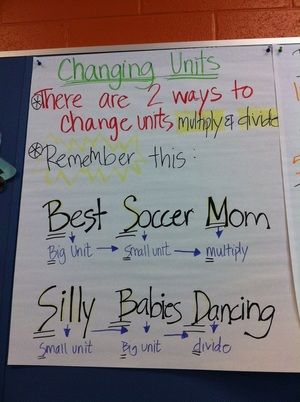 Changing Units
There are 2 ways to
change units multiply & divide
Remember this:
Best Soccer Mom
Big unit → Small unit → multiply
Silly Babies Dancing
Small unit Big unit divide